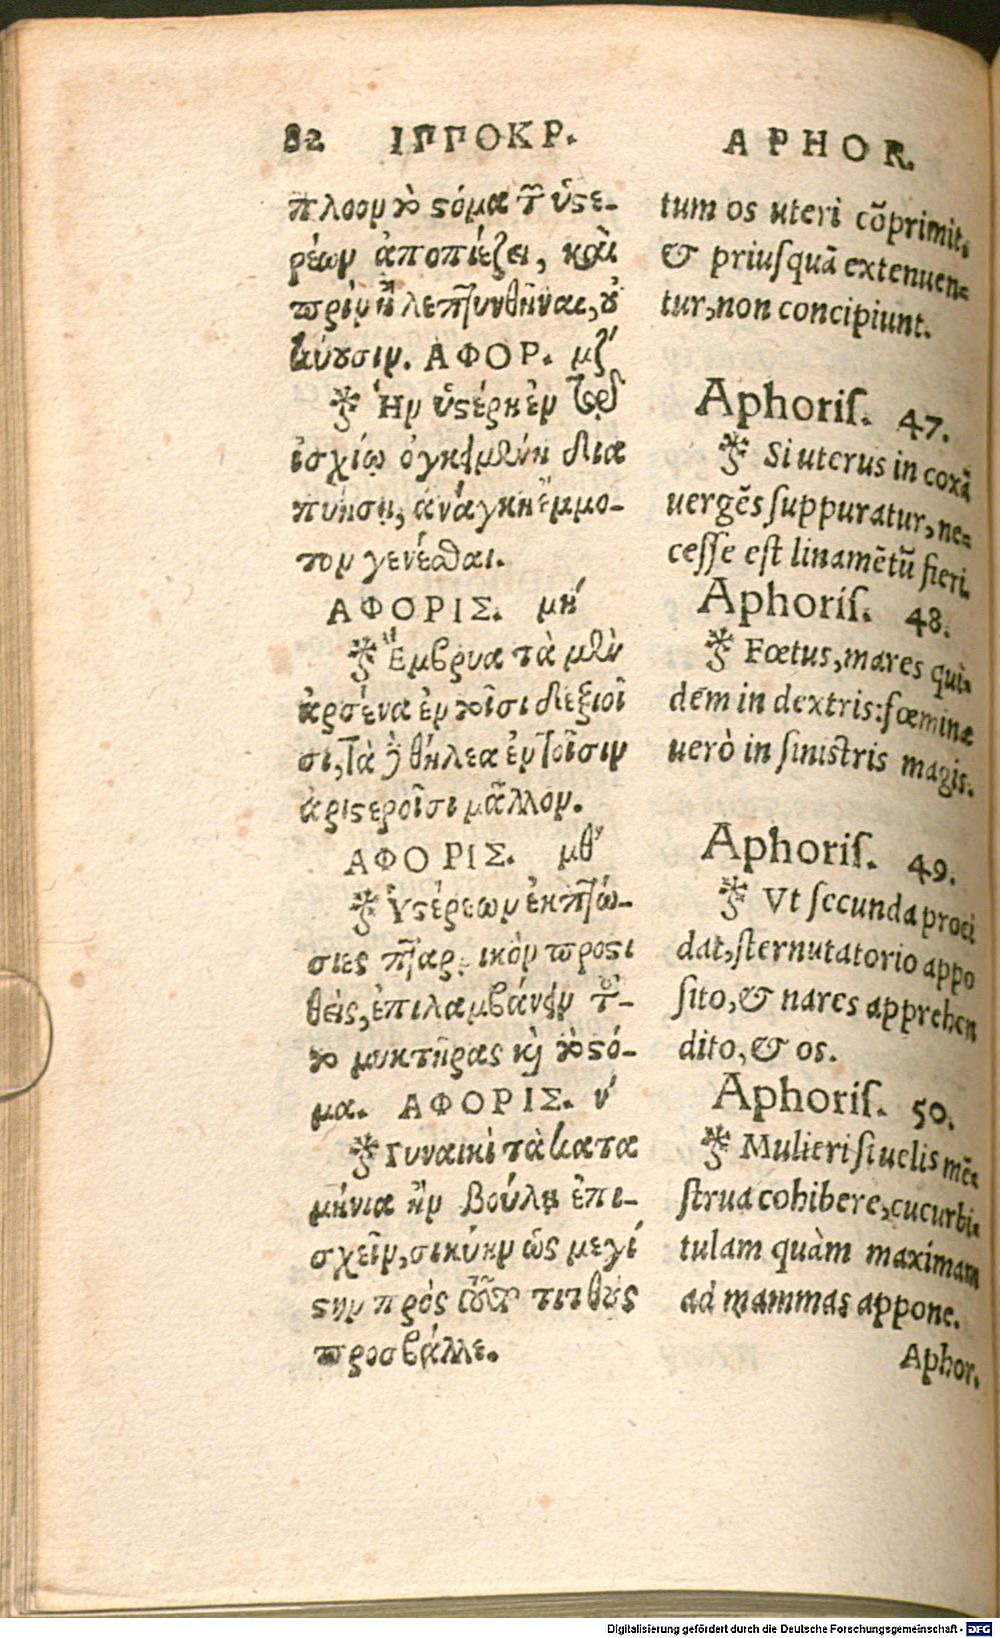 82 ΙΠΠΟΚΡ.
πλοον τὸ στόμα τῶν ὑστε-
ρέων ἀποπιέζει, καὶ
πρὶν ἢ λεπτυνθῆναι, οὐ
κύουσιν. ΑΦΟΡ. μζ´
Ἢν ὑστέρη ἐν τῷ
ἰσχίῳ ἐγκειμένη δια
πυήσῃ, ἀνάγκη ἔμμο-
τον γενέσθαι.
ΑΦΟΡΙΣ. μή
Ἔμβρυα τὰ μὲν
ἄρσενα ἐν τοῖσι δεξιοῖ
σι, τὰ δὲ θήλεα ἐν τοῖσιν
ἀριστεροῖσι μᾶλλον.
ΑΦΟΡΙΣ. μθ´
Ὑστέρεων ἐκπτώ-
σιες πταρμικὸν προστι
θεὶς, ἐπιλαμβάνειν τοὺ-
μυκτῆρας καὶ τὸ στό-
μα. ΑΦΟΡΙΣ. ν´
Γυναικὶ τὰ κατα
μήνια ἢν βούλῃ ἐπι-
σχεῖν, σικύην ὡς μεγί
στην πρὸς τιτθοὺς
προσβάλλε.
APHOR.
tum os uteri cõprimit,
& priusquã extenuen=
tur, non concipiunt.
Aphoris. 47.
Si uterus in coxã
uergẽs suppuratur, ne=
cesse est linamẽtũ fieri.
Aphoris. 48.
Fœtus, mares qui=
dem in dextris: fœminæ
uerò in sinistris magis.
Aphoris. 49.
Vt secunda proci
dat, sternutatorio appo
sito, & nares apprehen
dito, & os.
Aphoris. 50.
Mulieri si uelis mẽ=
strua cohibere, cucurbi=
tulam quàm maximam
ad mammas appone.
Aphor.
Digitalisierung gefördert durch die Deutsche Forschungsgemeinschaft - DFG